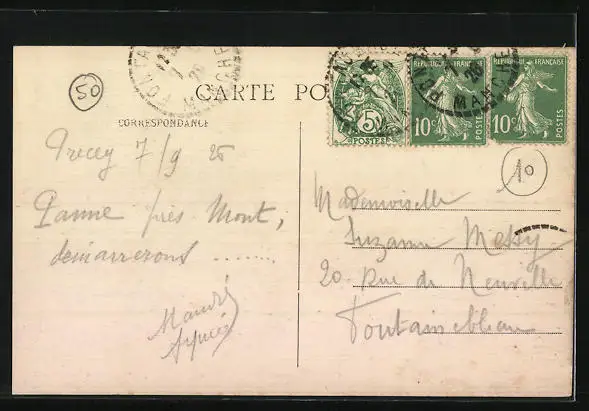 50
CARTE PO
CORRESPONDANCE
Precey 7/9 25
Panne près Mont,
démarrerons ........
5c
POSTES
REPUBLIQUE FRANÇAISE
10c
POSTES
REPUBLIQUE FRANÇAISE
10c
POSTES
MANCHE
10
Mademoiselle
Suzanne
20 Rue de Neuville
Fontainebleau